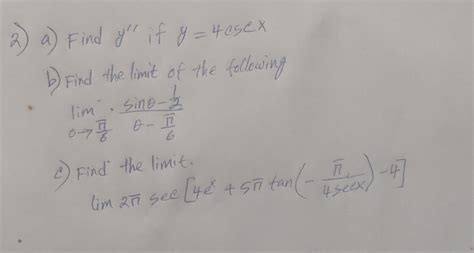 2) a) Find y'' if y = 4cscx
b) Find the limit of the following
lim θ→π/6 (sinθ - 1/2)/(θ - π/6)
c) Find the limit.
lim 2π sec [4e^x + 5π tan(-π/(4secx)) - 4π]